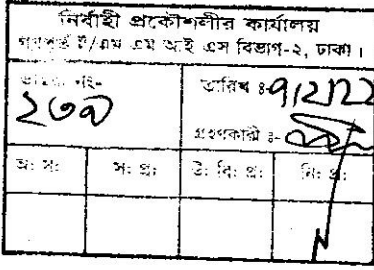 নির্বাহী প্রকৌশলীর কার্যালয়
গণপূর্ত ই/এম এম আই এস বিভাগ-২, ঢাকা।
নং- ২৩৯
তারিখ ঃ- 9/2/22
গ্রহণকারী ঃ-
অঃ সঃ সঃ প্রঃ উঃ বিঃ প্রঃ নিঃ প্রঃ